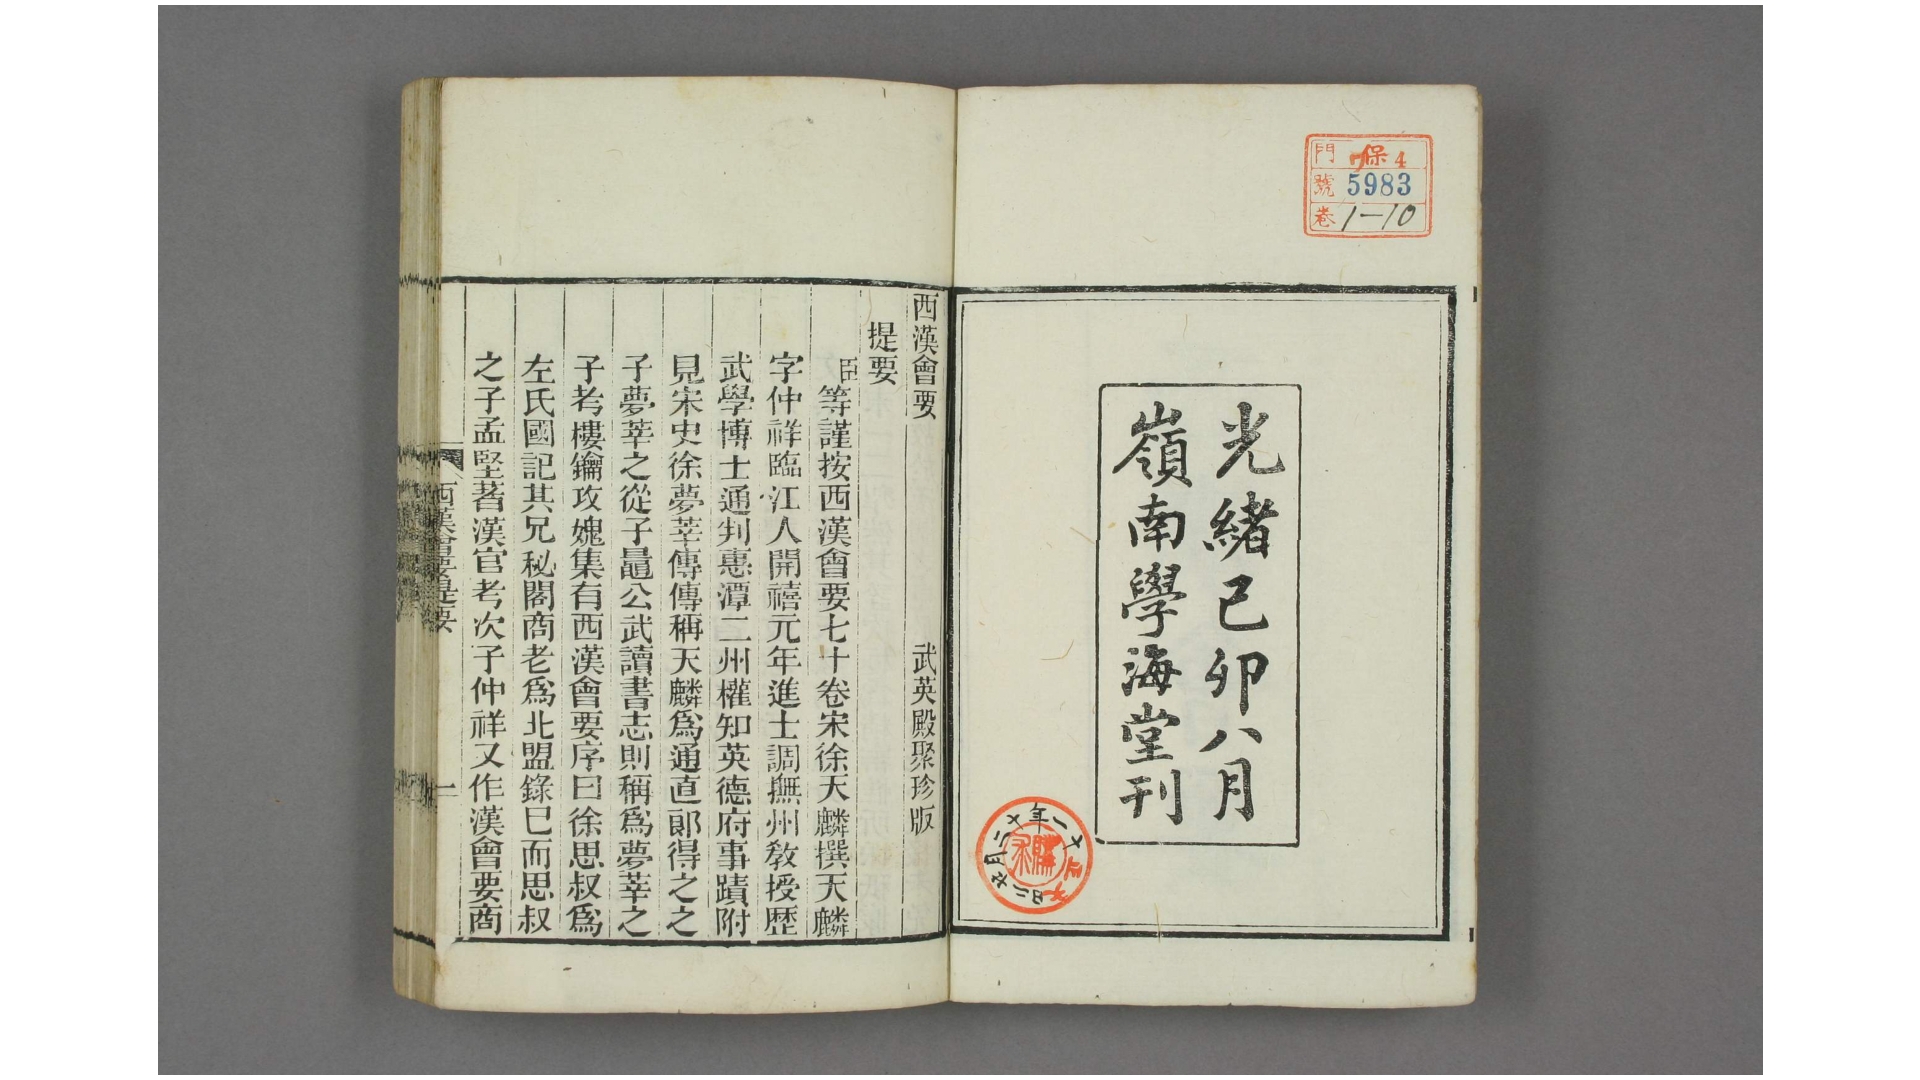 門 保 4
號 5983
卷 1-10
光緒己卯八月
嶺南學海堂刊
西漢會要 武英殿聚珍版
提要
臣等謹按西漢會要七十卷宋徐天麟撰天麟
字仲祥臨江人開禧元年進士調撫州敎授歷
武學博士通判惠潭二州權知英德府事蹟附
見宋史徐夢莘傳傳稱天麟爲通直郞得之之
子夢莘之從子鼂公武讀書志則稱爲夢莘之
子考樓鑰攻媿集有西漢會要序曰徐思叔爲
左氏國記其兄秘閣商老爲北盟錄巳而思叔
之子孟堅著漢官考次子仲祥又作漢會要商
西漢會要提要 一